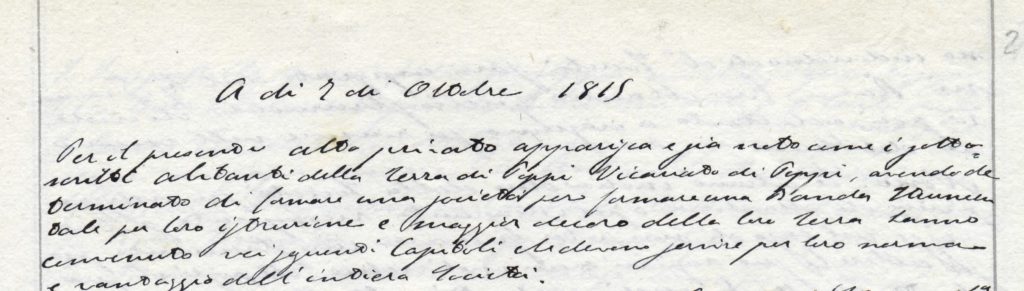 A di 2 di Ottobre 1815
Per il presente atto privato apparisca e sia noto come i sotto=
scritti abitanti della Terra di Poppi Vicariato di Poppi, avendo de
terminato di formare una società per formare una Banda Strumen
tale per loro istruzione e maggior decoro della loro Terra hanno
convenuto nei seguenti Capitoli che devono servire per loro norma
e vantaggio dell'intiera Società.